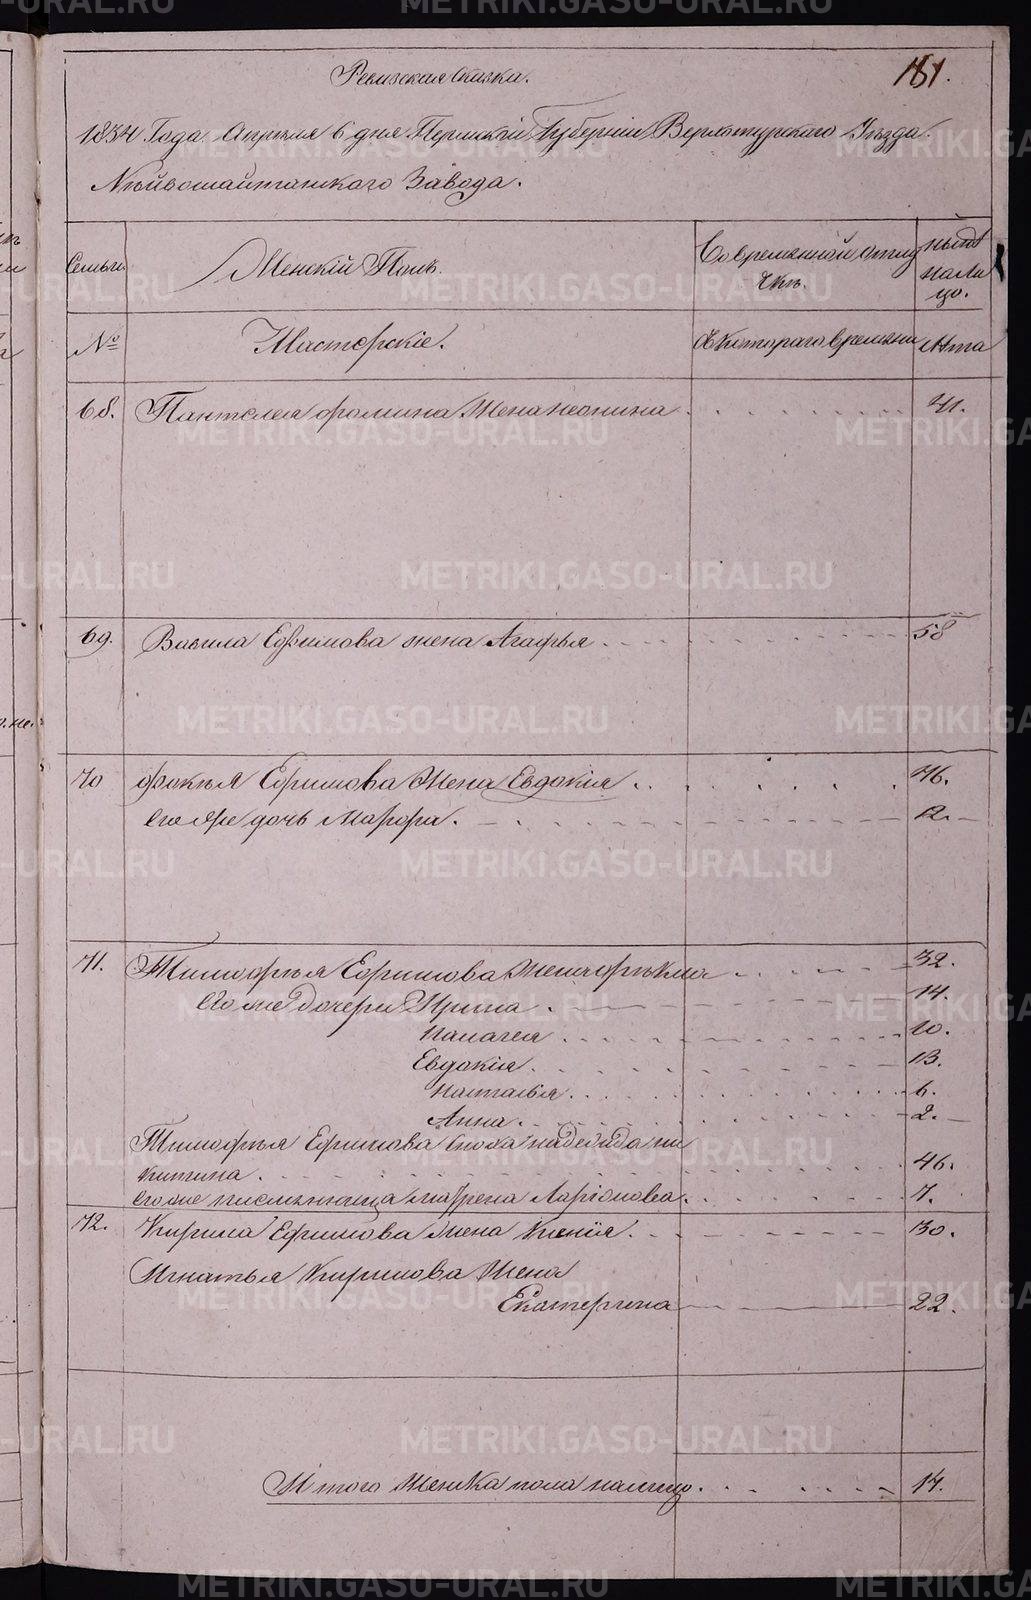 Ревизская Сказка.
151.
1834 Года Апреля 6 дня Пермской Губернии Верхотурского Уезда.
Нейвошайтанского Завода.
Семьи
Женский Полъ.
Во временной отлучке.
ныне на лицо.
№
Мастерские.
Съ которого времени
Лета
68. Пантелея Фомина жена неонила 41.
69. Васила Ефимова жена Агафья 58
70 Фокея Ефимова жена Евдокия 46.
его же дочь Марфа. 12.
71. Тимофея Ефимова жена фекла 32.
Его же дочери Ирина 14.
Палагея 10.
Евдокия 13.
Настасья 6.
Анна 2.
Тимофея Ефимова Сноха надежда ни
китина 46.
его же племянница Маврена Ларионова 7.
72. Кирила Ефимова жена Ксения. 30.
Игнатья Кирилова жена
Екатерина 22.
Итого женска пола налицо 14.
METRIKI.GASO-URAL.RU